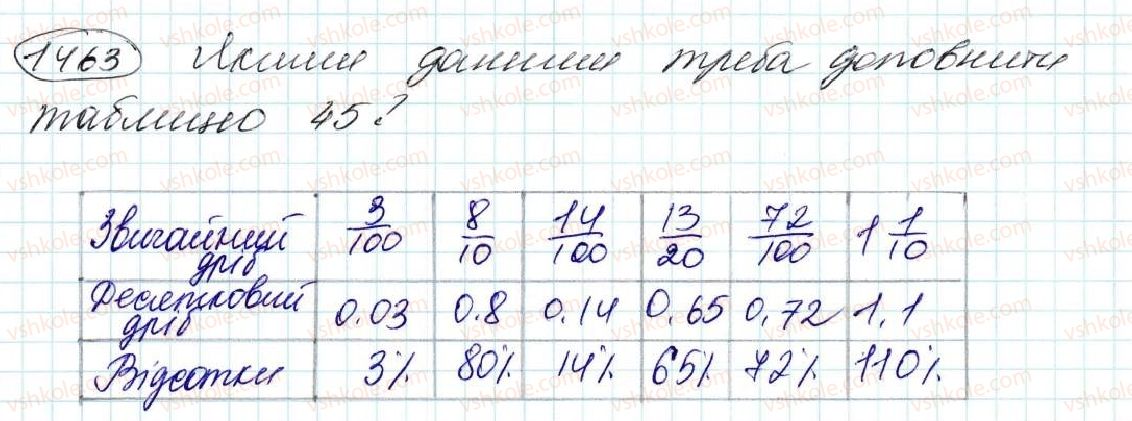 1463 Якими даними треба доповнити
таблицю 45?
Звичайний дріб 3/100 8/10 14/100 13/20 72/100 1 1/10
Десятковий дріб 0.03 0.8 0.14 0.65 0,72 1,1
Відсотки 3% 80% 14% 65% 72% 110%